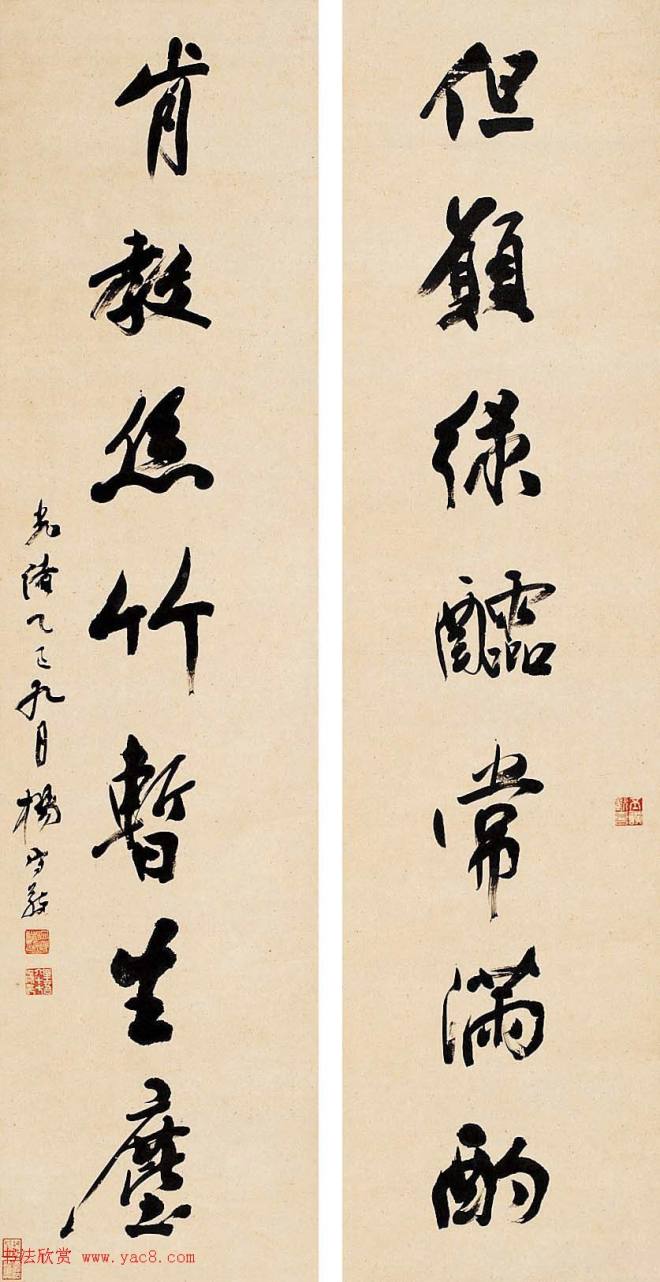 但願緑醽常滿酌
肯教絲竹暫生塵
光緒乙巳九月楊守敬
书法欣赏 www.yac8.com